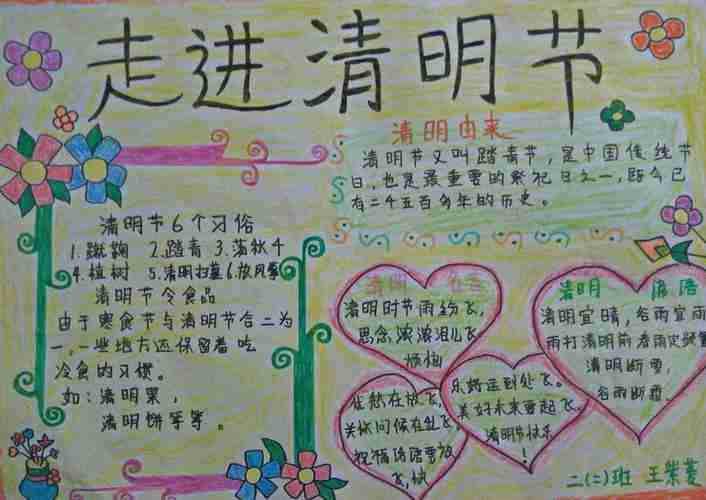 走进清明节
清明由来
清明节又叫踏青节,是中国传统节
日,也是最重要的祭祀日之一,距今已
有二千五百多年的历史。
清明节6个习俗
1.蹴鞠 2.踏青 3.荡秋千
4.植树 5.清明扫墓 6.放风筝
清明节令食品
由于寒食节与清明节合二为
一,一些地方还保留着吃
冷食的习惯。
如:清明果,
清明饼等等。
清明
清明时节雨纷飞,
思念浓浓泪儿飞
烦恼
在放飞,
关怀问候在乱飞。
祝福语要放
飞
乐 到处飞。
美好未来要起飞。
清明节快乐
!
清明 谚语
清明宜晴,谷雨宜雨
雨打清明前 春雨定频繁
清明断雪,
谷雨断霜。
二(二)班 王紫菱